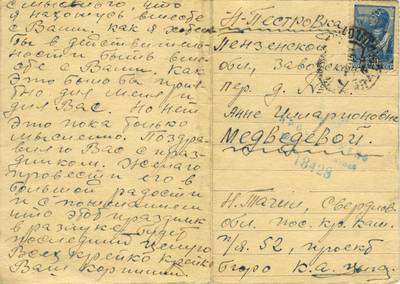 с мыслью, что
я нахожусь вместе
с Вами, как я хотел
бы в действитель-
ности быть вме-
сте с Вами. Как
это было бы прият-
но для меня и
для Вас. Но нет
это пока только
мысленно. Поздра-
вляю Вас с праз-
дником. Желаю
провести его в
большой радости
и с пониманием
что этот праздник
в разлуке будет
последний. Целую
Всех крепко крепко
Ваш
Н-Пестровка
Пензенской
обл., Заводск
пер. д. №
Анне Илларионовне
Медведевой.
18428
Н. Тагил, Свердлов.
обл. пос. кр. кам.
п/я. 52, проект
бюро